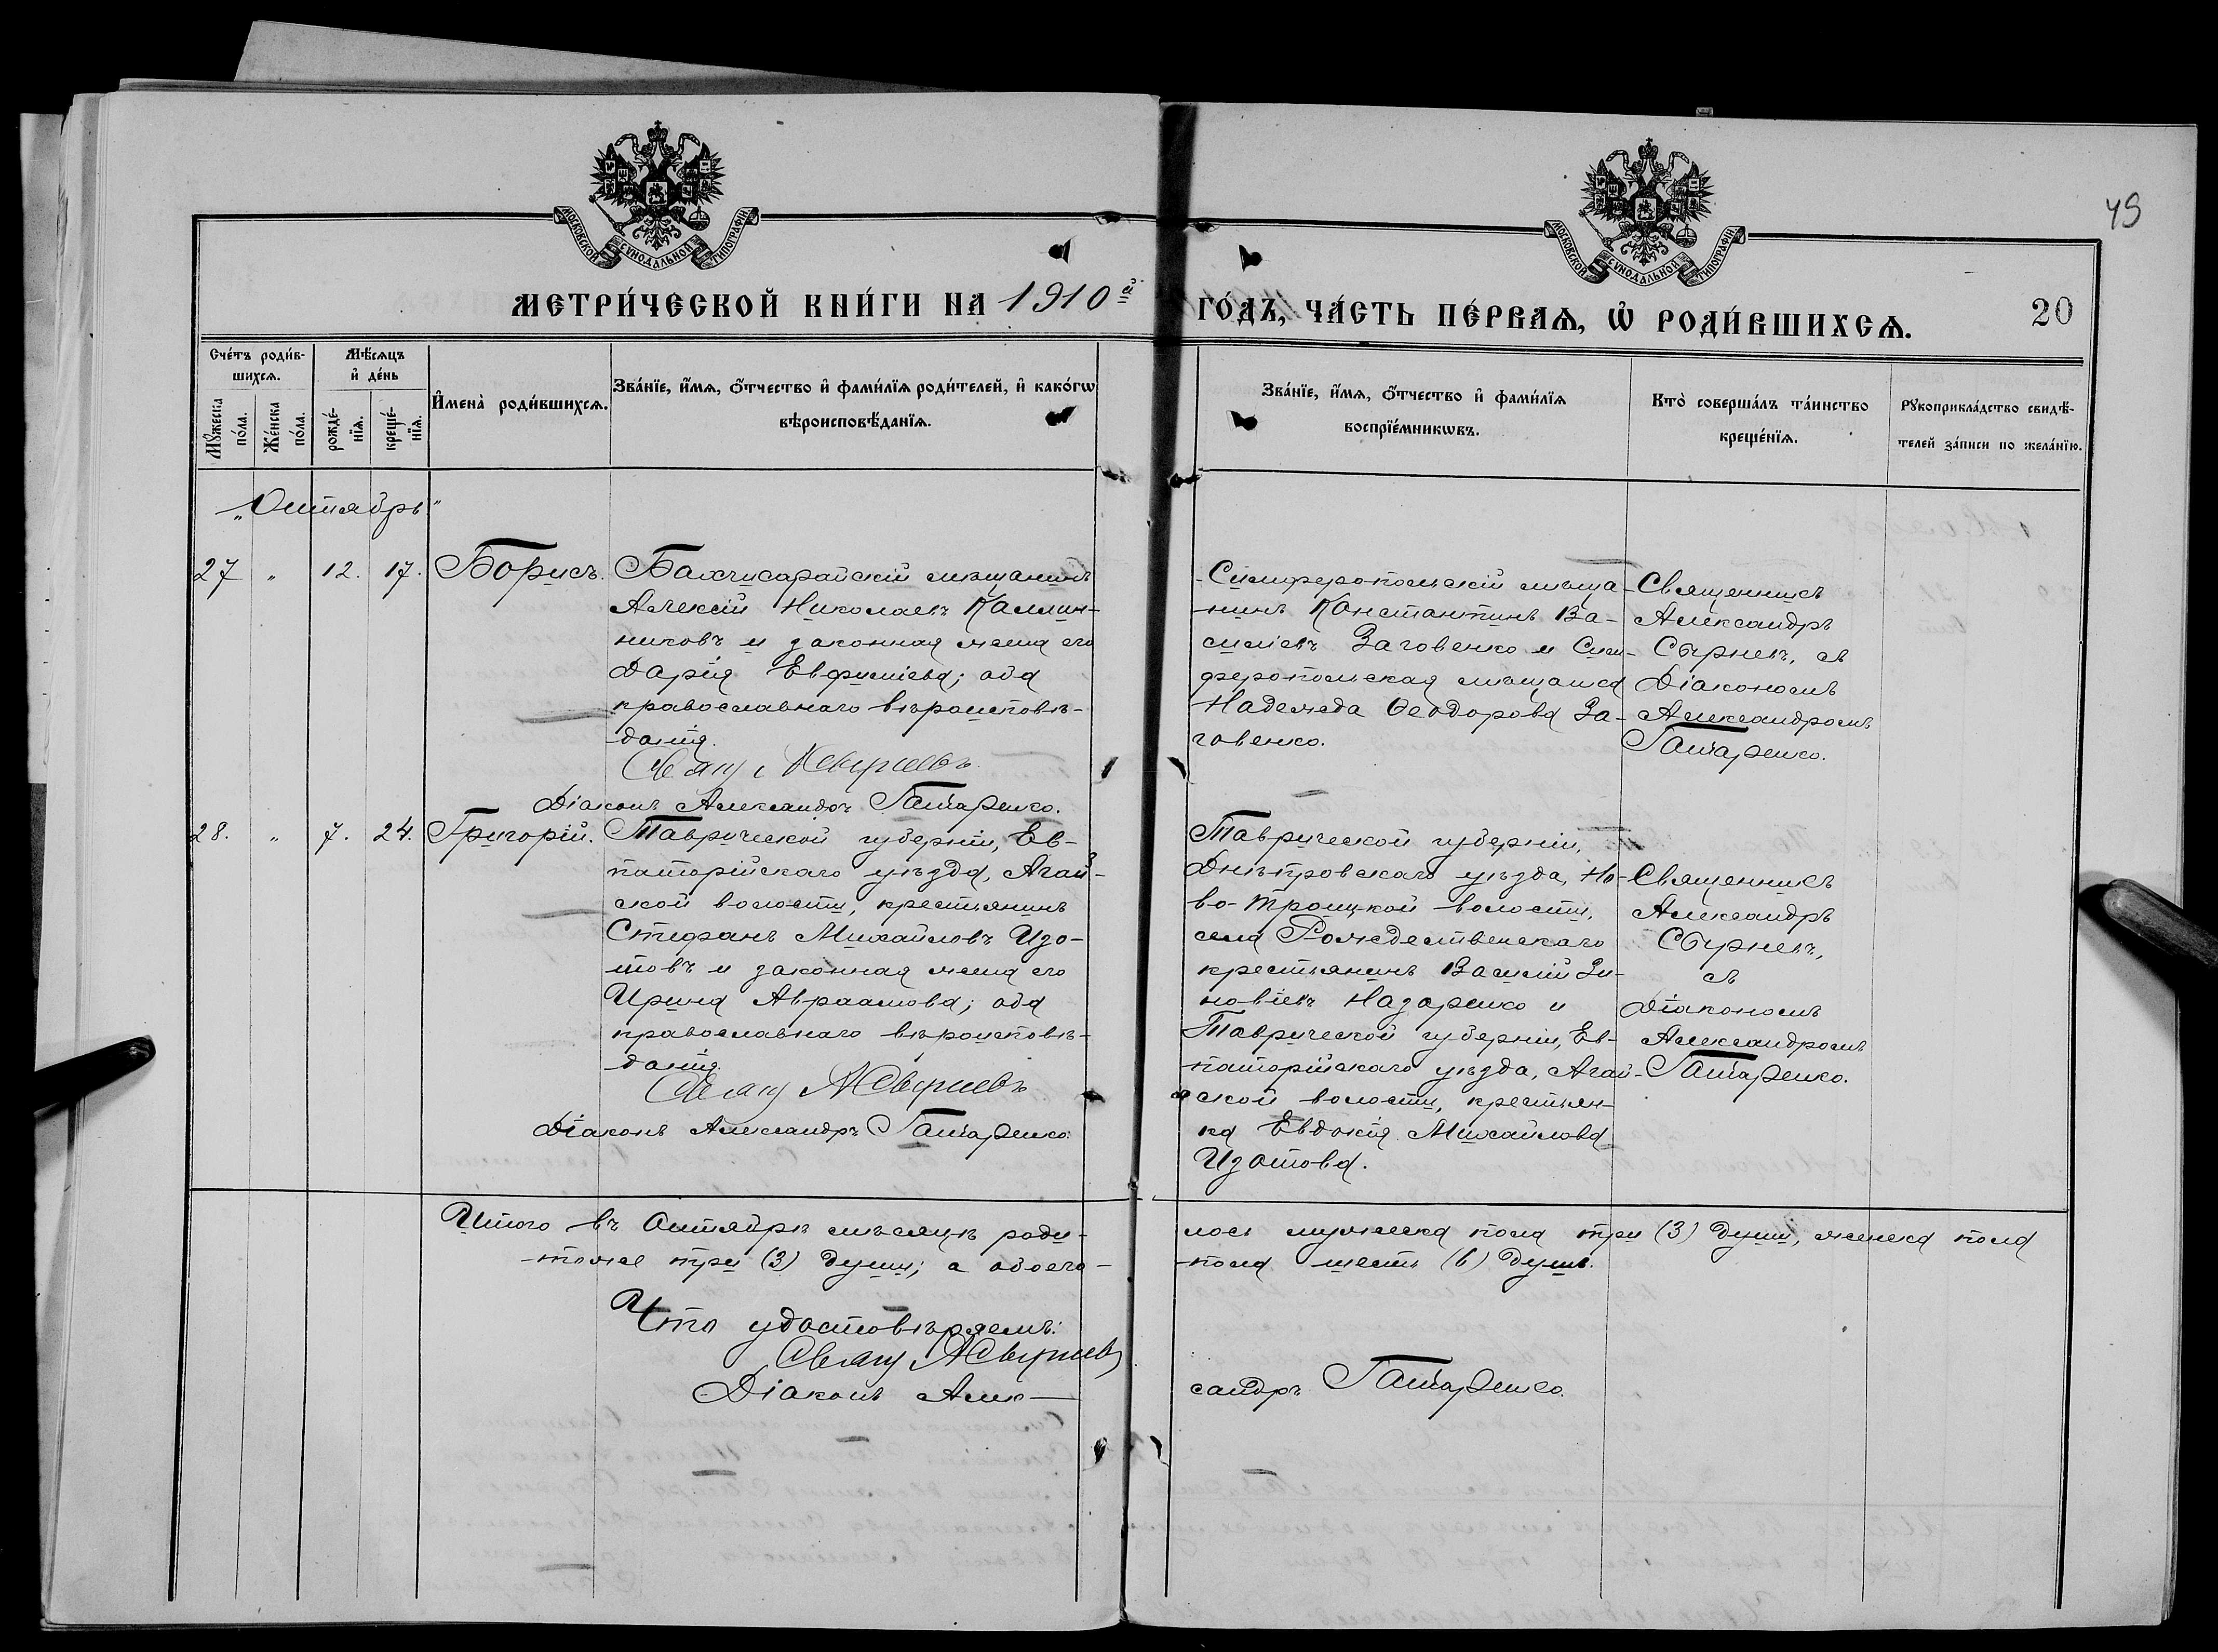 49
МОСКОВСКОЙ СѴНОДАЛЬНОЙ ТИПОГРАФІИ
МОСКОВСКОЙ СѴНОДАЛЬНОЙ ТИПОГРАФІИ
МЕТРИ́ЧЕСКОЙ КНИ́ГИ НА 1910й
ГО́ДЪ, ЧА́СТЬ ПЕ́РВАѦ, Ѡ РОДИ́ВШИХСѦ.
20
Сче́тъ роди́в-
шихсѧ.
Мꙋ́жеска
по́ла.
Же́нска
по́ла.
Мѣ́сяцъ
и҆ де́нь
рожде́-
нїѧ.
креще́-
нїѧ.
И҆мена̀ роди́вшихсѧ.
Зва́нїе, и҆́мѧ, ѻ҆́тчество и҆ фами́лїѧ роди́телей, и҆ како́гѡ
вѣроисповѣ́данїѧ.
Зва́нїе, и҆́мѧ, ѻ҆́тчество и҆ фами́лїѧ
воспрїе́мникѡвъ.
Кто̀ соверша́лъ та́инство
креще́нїѧ.
Рꙋкоприкла́дство свидѣ́-
телей за́писи по жела́нїю.
„Октябрь"
27 " 12. 17. Борисъ.
Бахчисарайскій мѣщанинъ
Алексій Николаевъ Калин-
никовъ и законная жена его
Дарія Евфиміева; оба
православнаго вѣроисповѣ-
данія.
Свящ. А Свирневъ
Діаконъ Александръ Гашаренко.
Симферопольскій мѣща-
нинъ Константинъ Ва-
силіевъ Заговенко и Сим-
феропольская мѣщанка
Надежда Ѳеодорова За-
говенко.
Священникъ
Александръ
Сѣрневъ, съ
Діакономъ
Александромъ
Гашаренко.
28. " 7. 24. Григорій.
Таврической губерніи, Ев-
паторійскаго уѣзда, Агай-
ской волости, крестьянинъ
Стефанъ Михайловъ Изо-
товъ и законная жена его
Ирина Авраамова; оба
православнаго вѣроисповѣ-
данія.
Свящ А Свирневъ
Діаконъ Александръ Гашаренко.
Таврической губерніи,
Днѣпровскаго уѣзда, Но-
во-Троицкой волости,
села Рождественскаго
крестьянинъ Василій Зи-
новіевъ Назаренко и
Таврической губерніи, Ев-
паторійскаго уѣзда, Агай-
ской волости, крестьян-
ка Евдокія Михайлова
Изотова.
Священникъ
Александръ
Сѣрневъ,
съ
Діакономъ
Александромъ
Гашаренко.
Итого въ Октябрѣ мѣсяцѣ роди-
лось мужеска пола три (3) души, женска пола
-тоже три (3) души; а обоего-
-пола шесть (6) душъ.
Что удостовѣряемъ:
Свящ А Свирневъ
Діаконъ Алек-
сандръ Гашаренко.